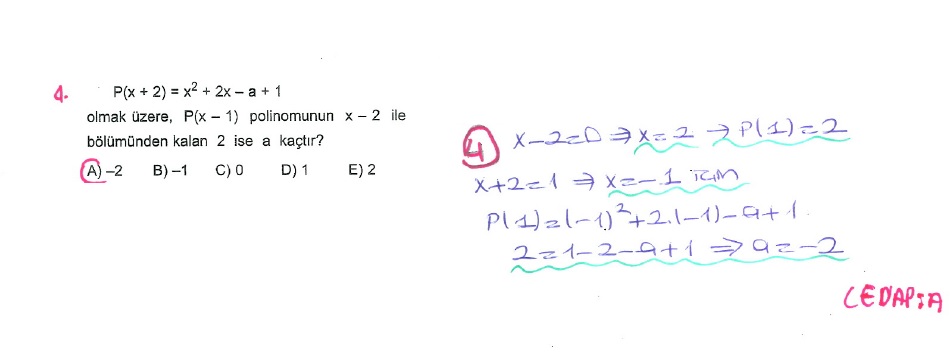 4.
P(x + 2) = x² + 2x – a + 1
olmak üzere, P(x – 1) polinomunun x – 2 ile
bölümünden kalan 2 ise a kaçtır?
A) –2 B) –1 C) 0 D) 1 E) 2
4 x-2=0 ⇒ x=2 → P(1)=2
x+2=1 ⇒ x=-1 için
P(1)=(-1)²+2.(-1)-a+1.
2=1-2-a+1 ⇒ a=-2
CEVAP:A